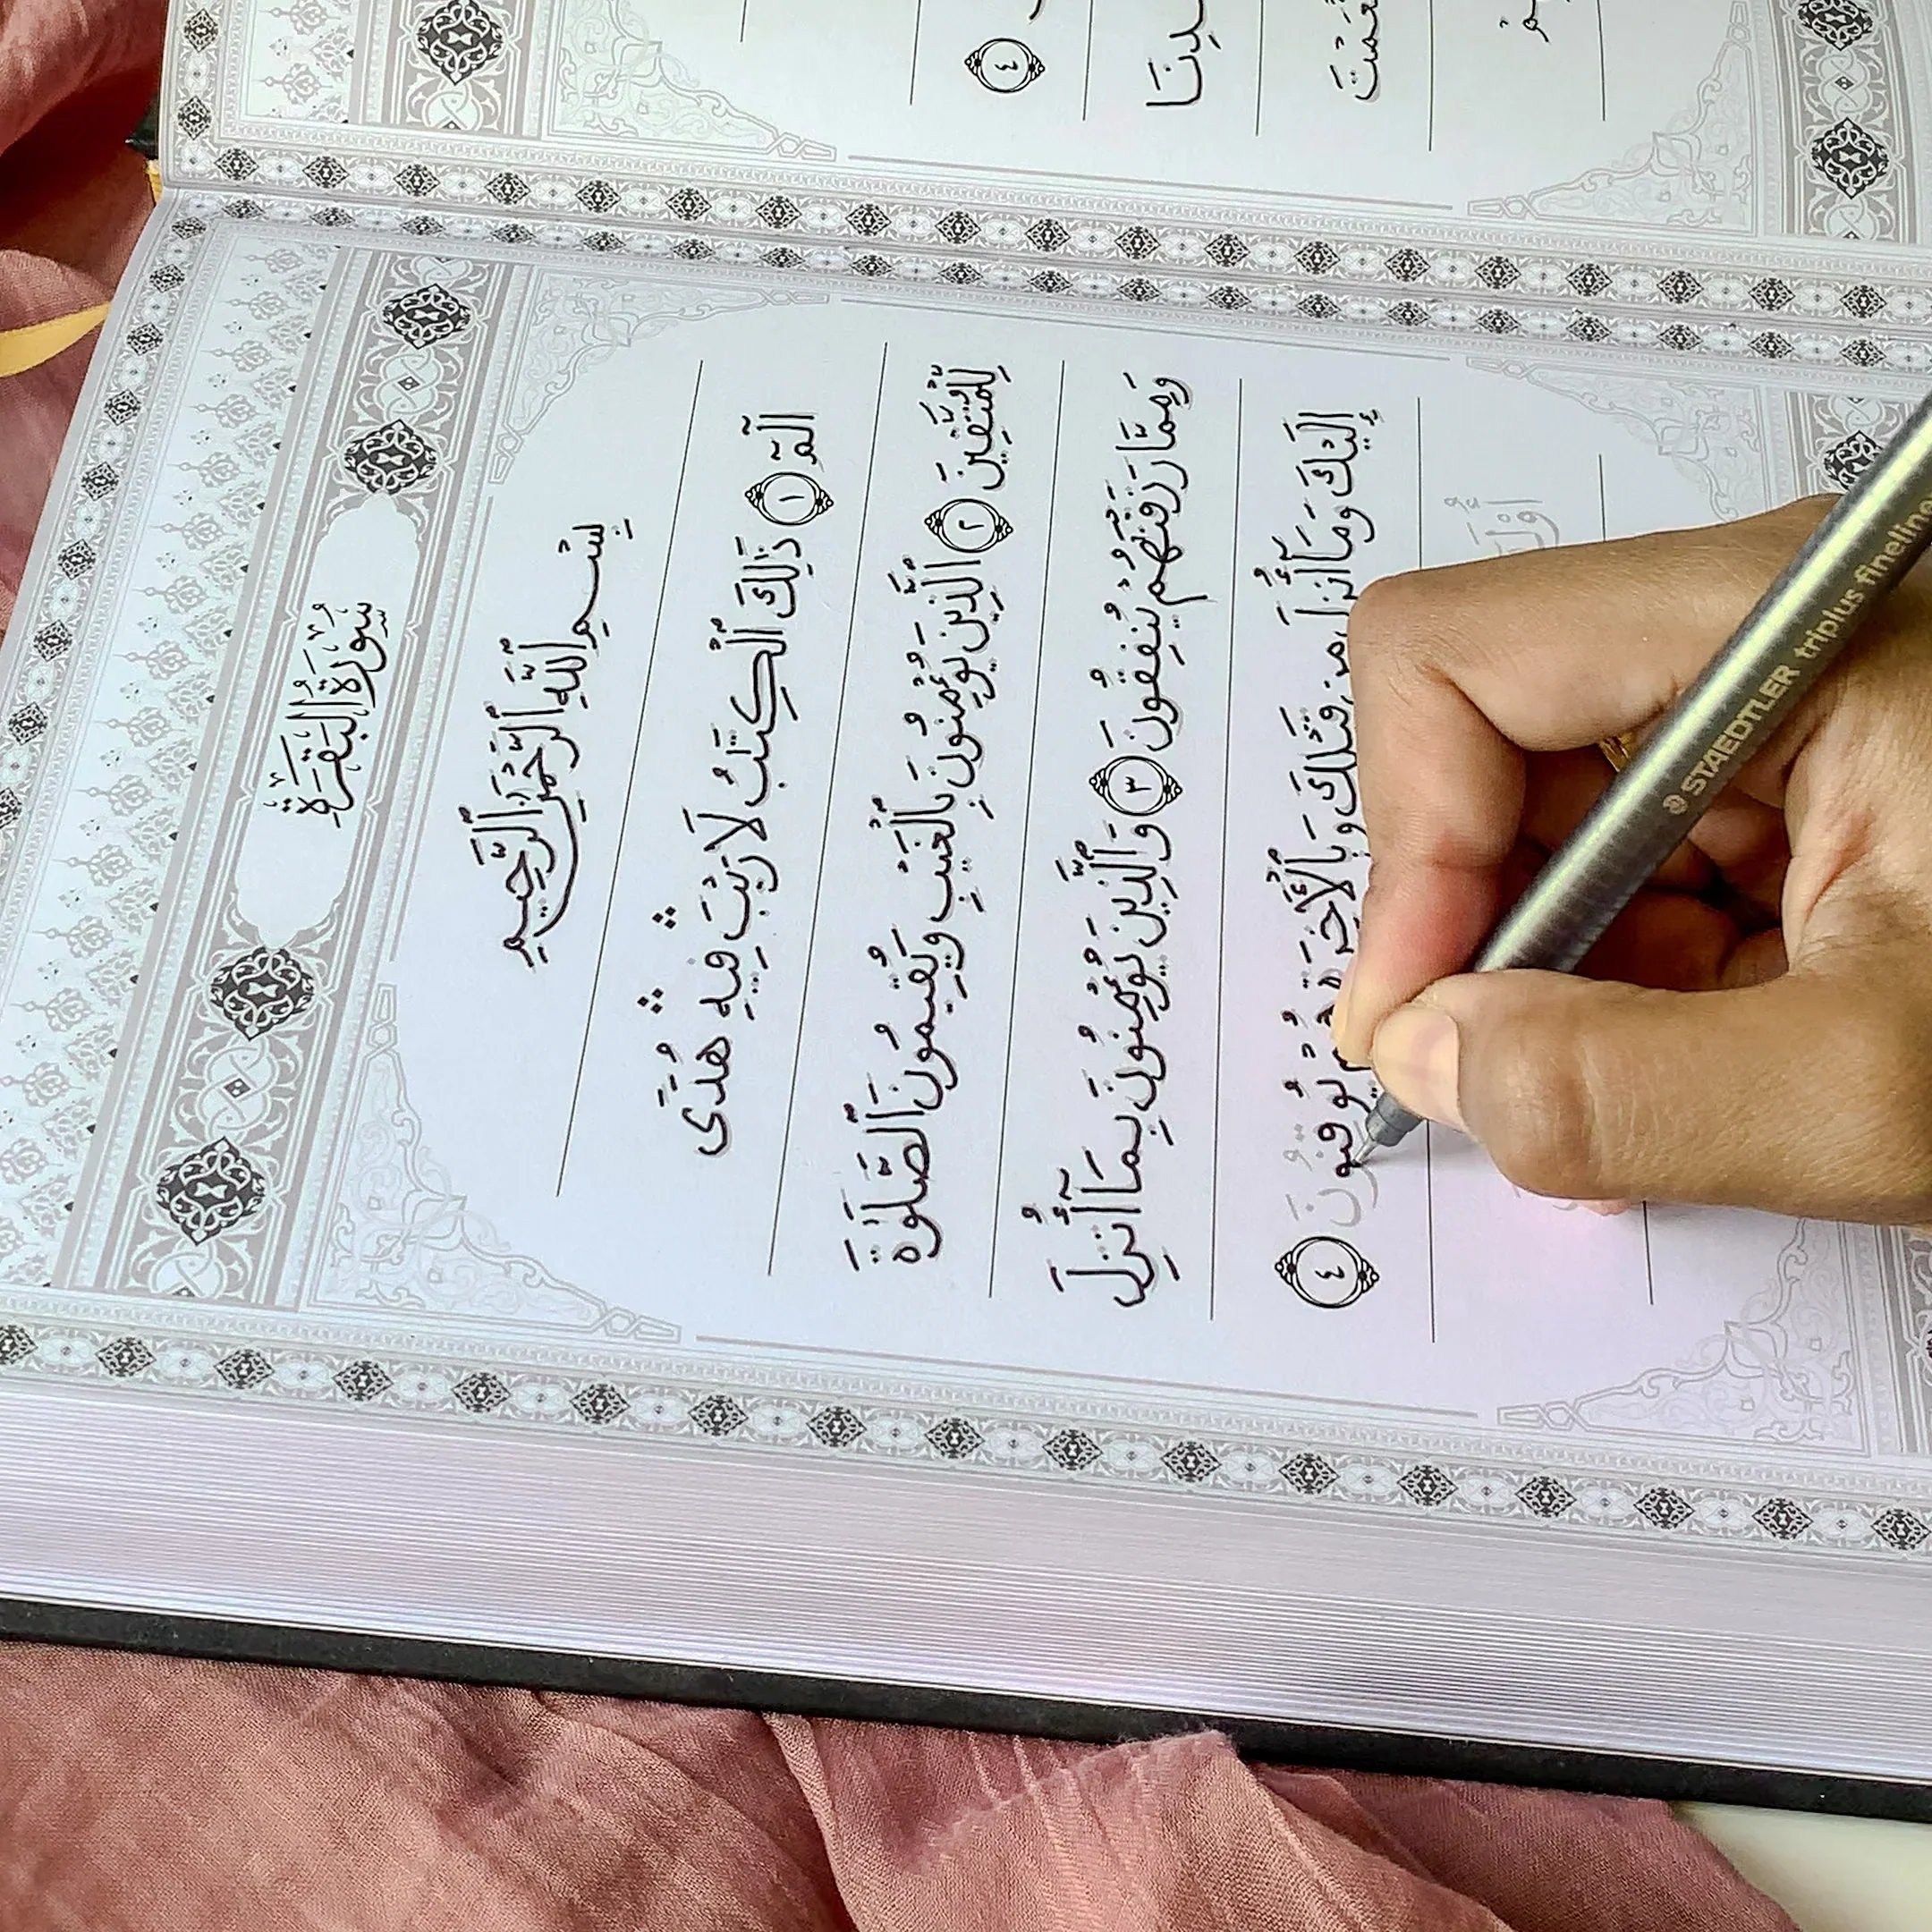 سُورَةُ الْبَقَرَةِ
بِسْمِ ٱللَّهِ ٱلرَّحْمَٰنِ ٱلرَّحِيمِ
الٓمٓ ١ ذَٰلِكَ ٱلْكِتَٰبُ لَا رَيْبَ ۛ فِيهِ ۛ هُدًى
لِّلْمُتَّقِينَ ٢ ٱلَّذِينَ يُؤْمِنُونَ بِٱلْغَيْبِ وَيُقِيمُونَ ٱلصَّلَوٰةَ
وَمِمَّا رَزَقْنَٰهُمْ يُنفِقُونَ ٣ وَٱلَّذِينَ يُؤْمِنُونَ بِمَآ أُنزِلَ
إِلَيْكَ وَمَآ أُنزِلَ مِن قَبْلِكَ وَبِٱلْأَخِرَةِ هُمْ يُوقِنُونَ ٤
٤
STAEDTLER triplus fineliner